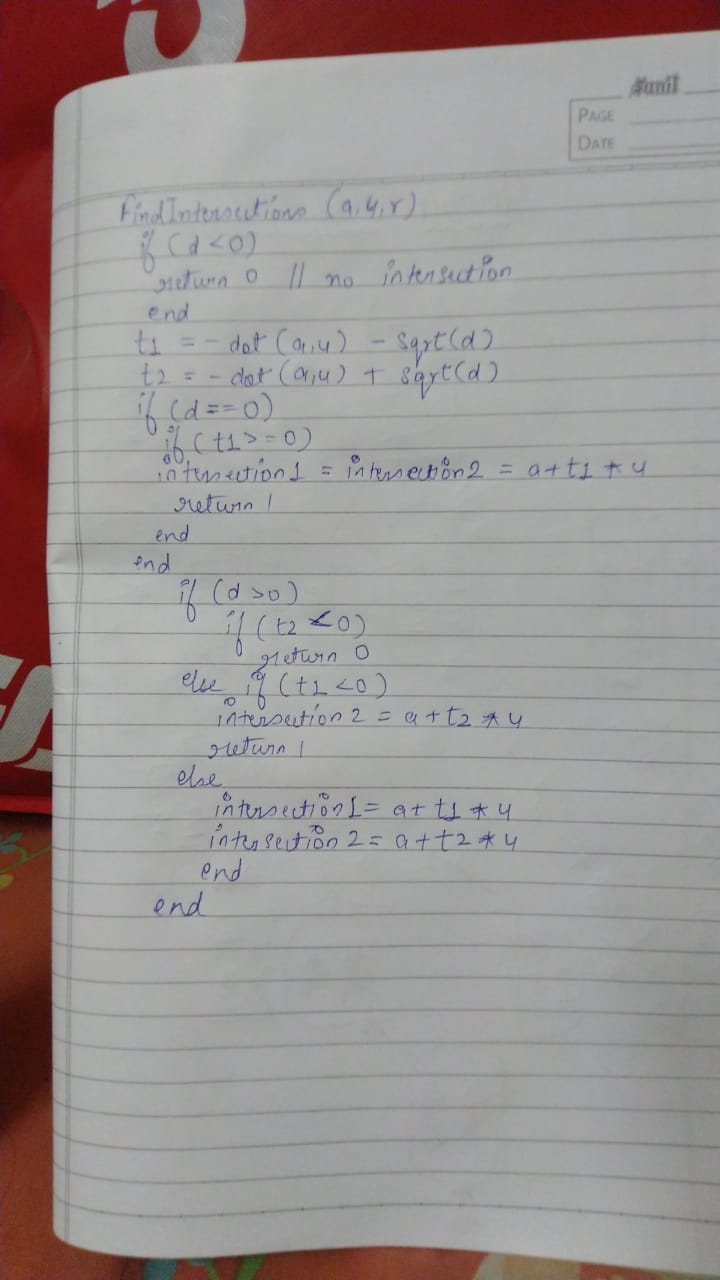 Sunil
PAGE
DATE
FindIntersections (a,u,r)
if (d<0)
return 0 // no intersection
end
t1 = - dot (a,u) - sqrt(d)
t2 = - dot (a,u) + sqrt(d)
if (d==0)
if (t1>=0)
intersection1 = intersection2 = a+t1 * u
return 1
end
end
if (d>0)
if (t2 <0)
return 0
else if (t1 <0)
intersection 2 = a+t2 * u
return 1
else
intersection1= a+ t1 * u
intersection 2= a+t2 * u
end
end